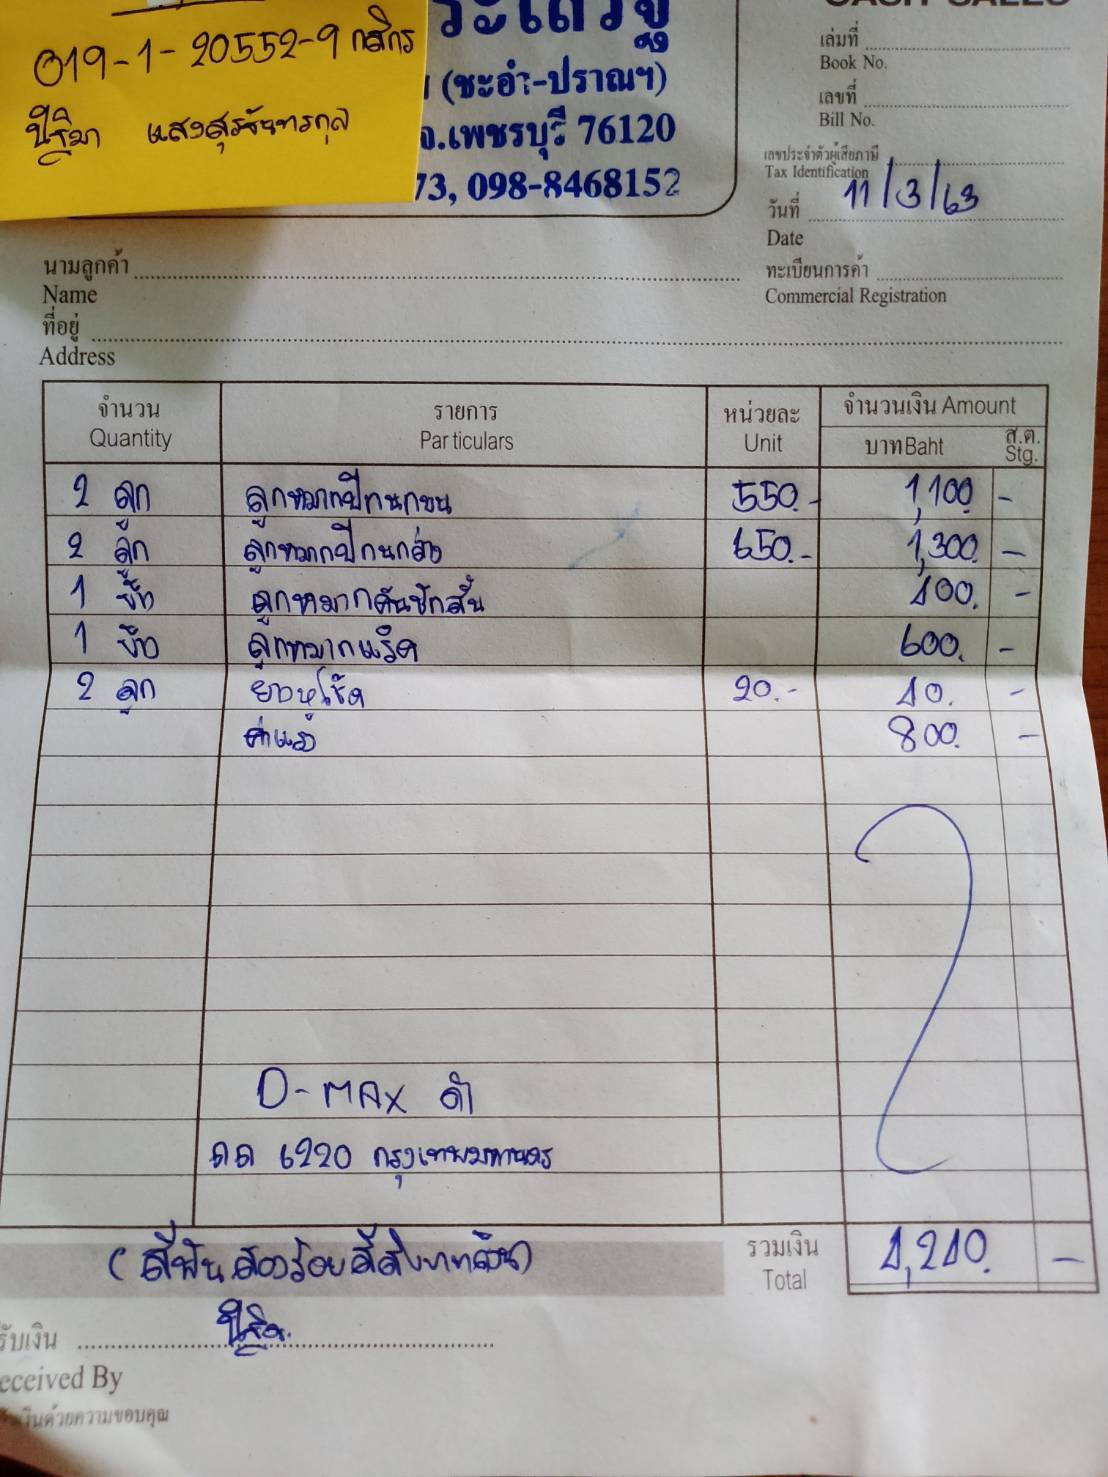 CASH SALES
019-1-20552-9 กสิกร
แสงสุรจันทรกุล
(ชะอำ-ปราณฯ)
จ.เพชรบุรี 76120
73, 098-8468152
เล่มที่
Book No.
เลขที่
Bill No.
เลขประจำตัวผู้เสียภาษี
Tax Identification
วันที่ 11/3/63
Date
ทะเบียนการค้า
Commercial Registration
นามลูกค้า
Name
ที่อยู่
Address
จำนวน รายการ หน่วยละ จำนวนเงิน Amount
Quantity Particulars Unit บาท Baht ส.ต. Stg.
2 ลูก ลูกหมากปีกนกบน 550.- 1,100. -
2 ลูก ลูกหมากปีกนกล่าง 650.- 1,300. -
1 ข้าง ลูกหมากคันชักสั้น 400. -
1 ข้าง ลูกหมากแร็ค 600. -
2 ลูก ยางหูโช้ค 20.- 40. -
ค่าแรง 800. -
D-MAX ดำ
ฒฒ 6220 กรุงเทพมหานคร
(สี่พันสองร้อยสี่สิบบาทถ้วน) รวมเงิน 4,240. -
Total
รับเงิน
eceived By
เงินด้วยความขอบคุณ